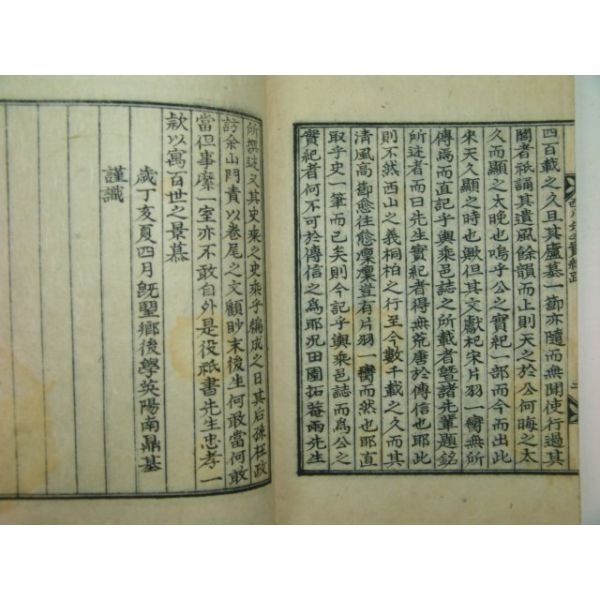 四百載之久且其廬墓一節亦隨而無聞使行過其
閭者祇誦其遺風餘韻而止則天之於公何晦之太
久而顯之太晚也嗚乎公之實紀一部而今而出此
來天久顯之時也歟但其文獻杞宋片羽一臠無所
傳焉而直記乎輿乘邑誌之所載者曁諸先輩題銘
所述者而曰先生實紀者得無荒唐於傳信也耶此
則不然西山之義桐柏之行至今數千載之久而其
清風高節愈往愈凜凜豈有片羽一臠而然也耶直
取乎史一筆而已矣則今記乎輿乘邑誌而爲公之
實紀者何不可於傳信之爲耶况田園拓菴兩先生
所撰述又其史乘之史乘乎編成之日其后孫柱政
訪余山門責以卷尾之文顧眇末後生何敢當何敢
當但事縻一室亦不敢自外是役祇書先生忠孝一
款以寓百世之景慕
歲丁亥夏四月旣朢鄕後學英陽南鼎基
謹識